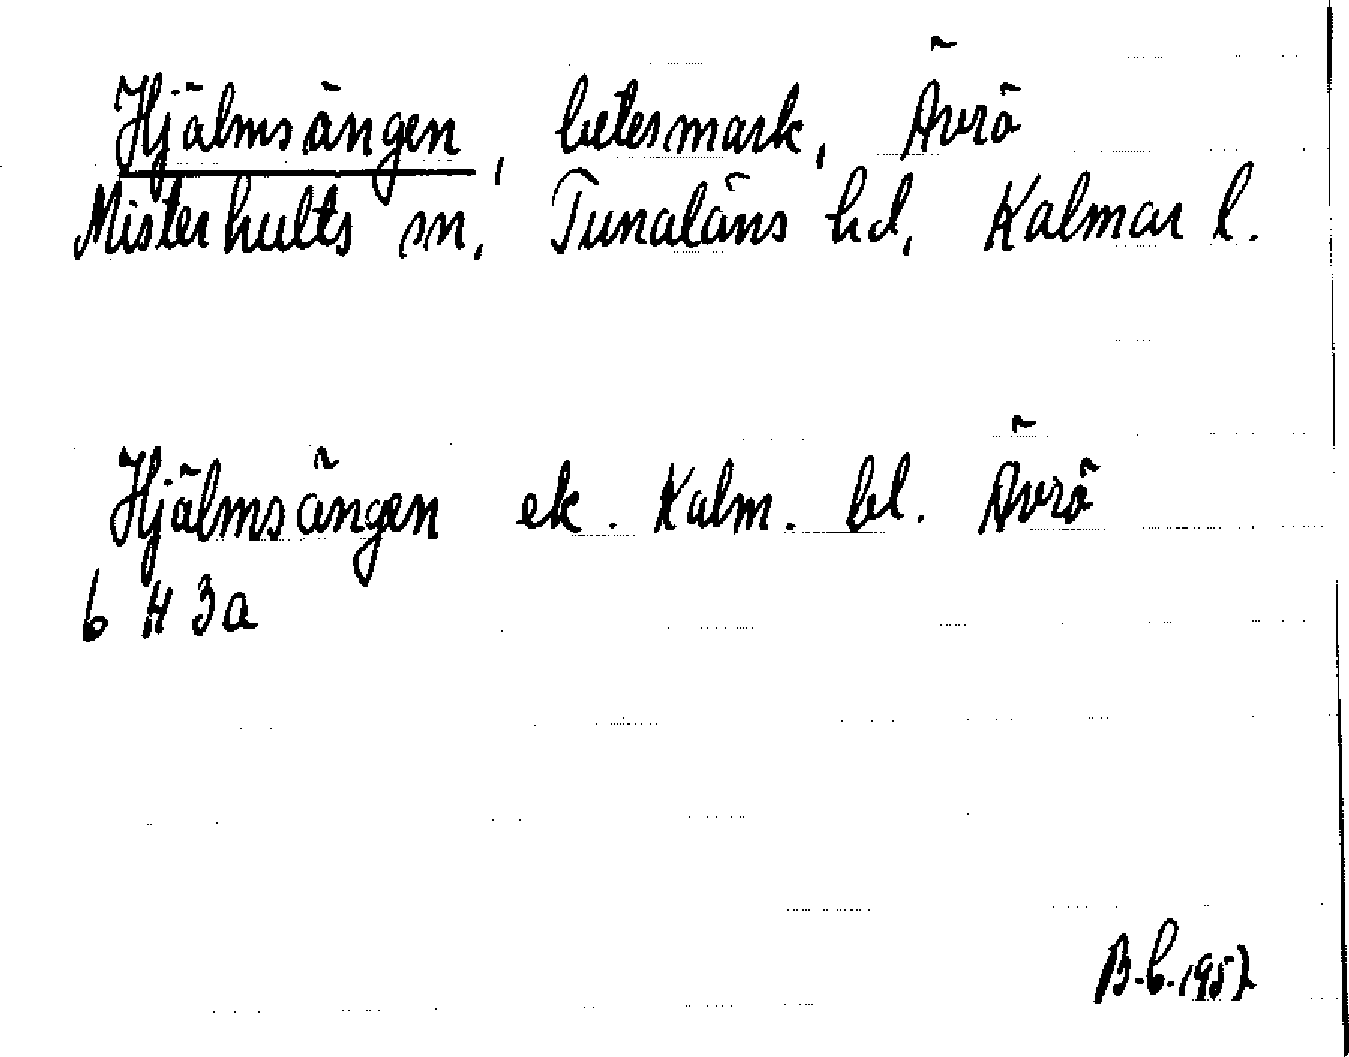 Hjälmsängen, betesmark, Ävrö
Misterhults sn, Tunaläns hd, Kalmar l.
Hjälmsängen ek. Kalm. bl. Ävrö
6 H 3a
B.b. 1957